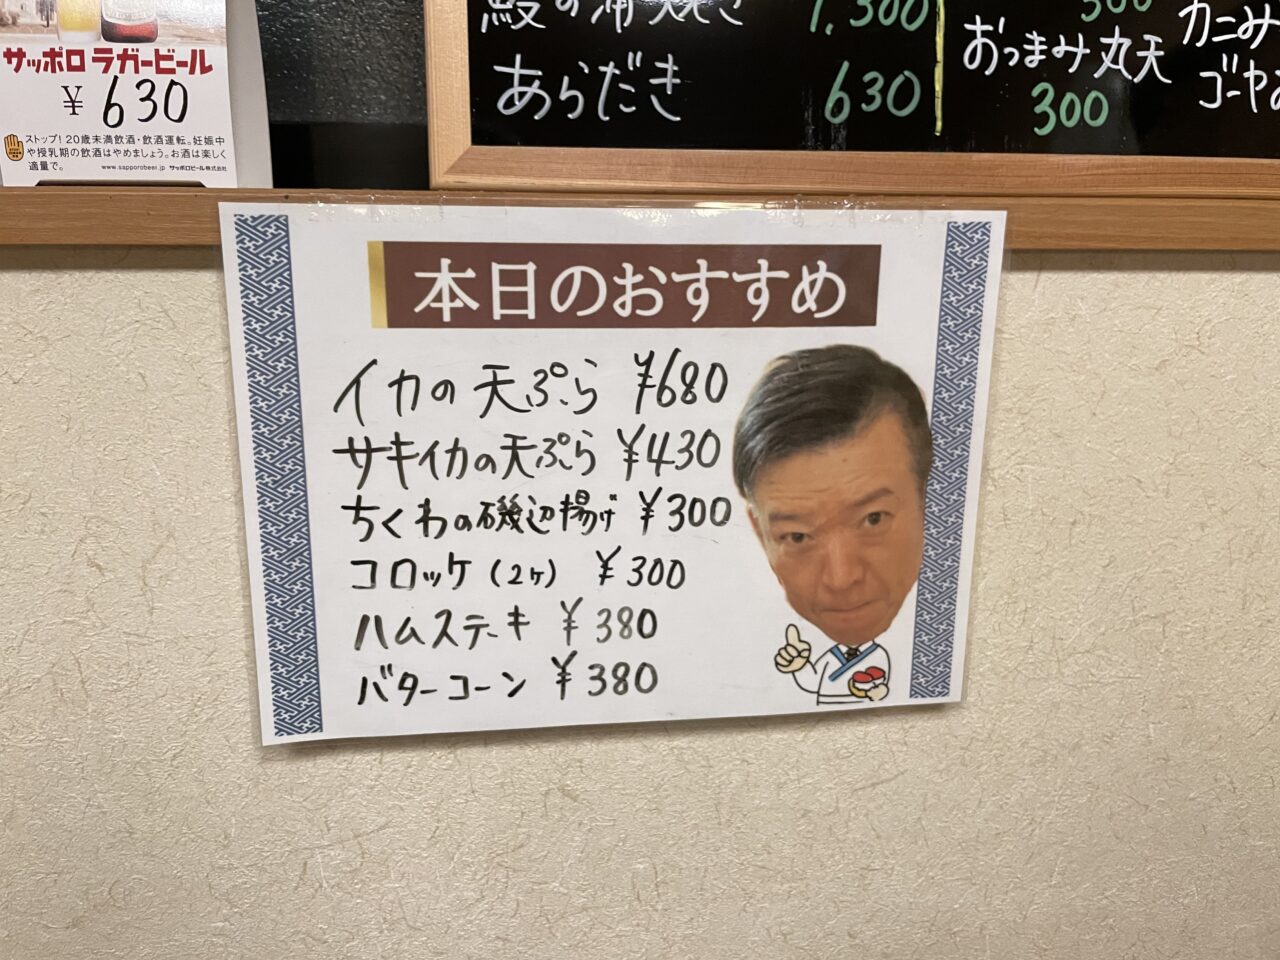 サッポロ ラガービール
¥630
ストップ!20歳未満飲酒・飲酒運転。妊娠中
や授乳期の飲酒はやめましょう。お酒は楽しく
適量で。
www.sapporobeer.jp サッポロビール株式会社
1,300
あらだき 630
300
おつまみ丸天
300
カニみ
ゴーヤ
本日のおすすめ
イカの天ぷら ¥680
サキイカの天ぷら ¥430
ちくわの磯辺揚げ ¥300
コロッケ(2ケ) ¥300
ハムステーキ ¥380
バターコーン ¥380